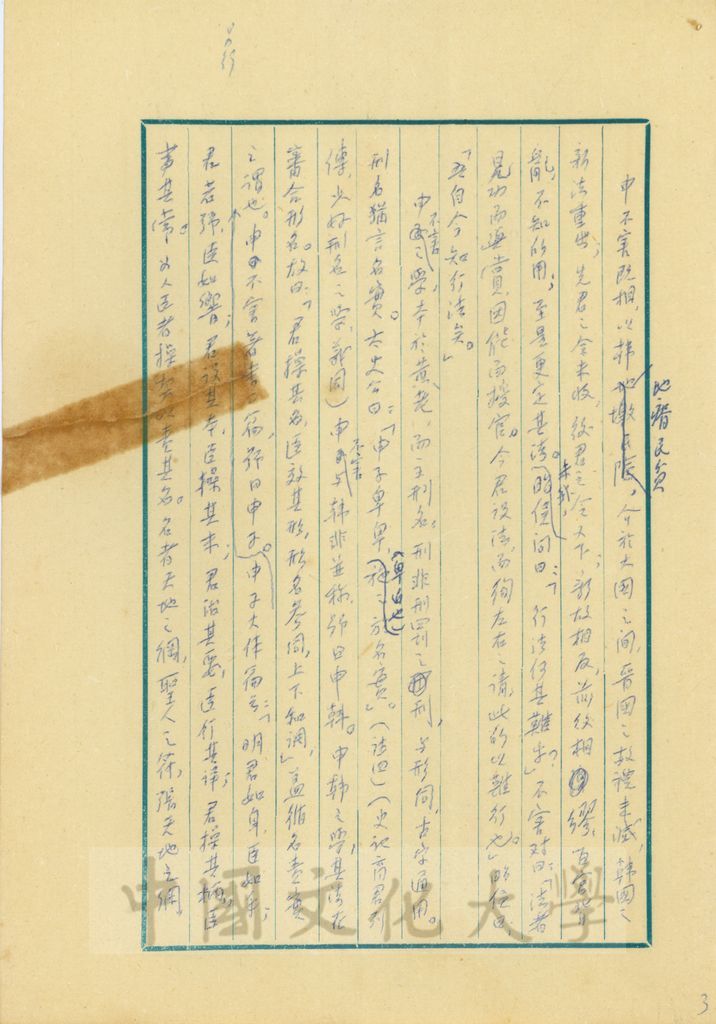 申不害既相,以韓地瘠民貧,介於大國之間,晉國之故禮未滅,韓國之
新法重出;先君之令未收,後君之令又下;新故相反,前後相繆;百官背
亂,不知所用;至是更定其法。昭侯問曰:「行法何其難乎?」不害対曰:「法者
見功而與賞,因能而授官。今君設法,而徇左右之請,此所以難行也。」昭侯曰
「吾自今知行法矣。」
申不害之學本於黃老,而主刑名,刑非刑罰之刑,与形同,古字通用。
刑名猶言名實。太史公曰:「申子卑卑,(卑自也)施之於名實。」(史記商君列
傳,少好刑名之學,義同)申不害与韓非並称,號曰申韓。申韓之學,其法在
審合形名。故曰:「君操其名,臣效其形,形名參同,上下和調」,蓋循名責實
之謂也。申不害著書二篇,號曰申子。申子大体篇云:「明君如身,臣如手;
君若號,臣如響;君設其本,臣操其末;君治其要,臣行其詳;君操其柄,臣
事其常。為人臣者操契以責其名。名者天地之綱,聖人之符,張天地之綱,
中國文化大學
3